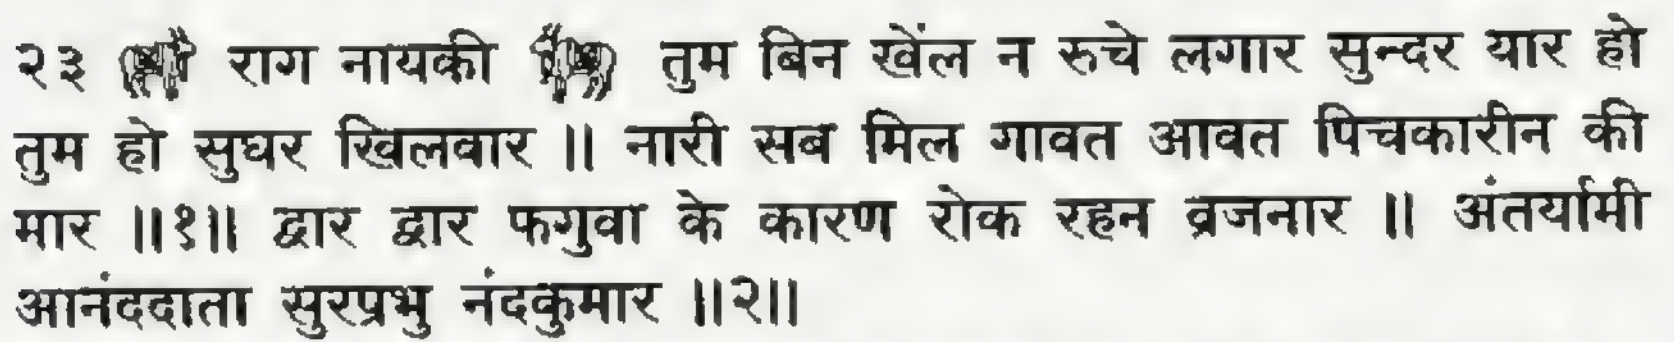 २३ राग नायकी तुम बिन खेंल न रुचे लगार सुन्दर यार हो
तुम हो सुघर खिलवार ॥ नारी सब मिल गावत आवत पिचकारीन की
मार ॥१॥ द्वार द्वार फगुवा के कारण रोक रहन व्रजनार ॥ अंतर्यामी
आनंददाता सुरप्रभु नंदकुमार ॥२॥